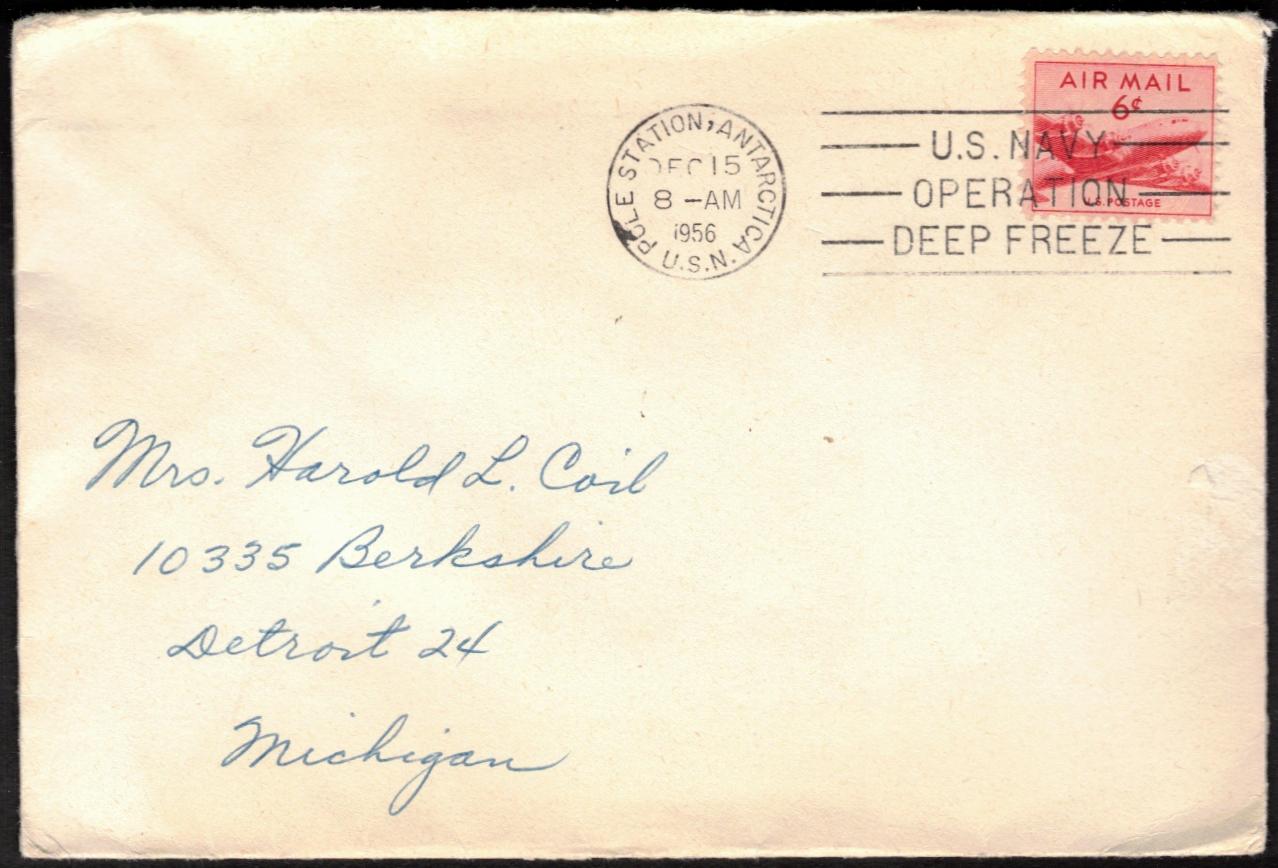 AIR MAIL
6¢
U.S. POSTAGE
POLE STATION, ANTARCTICA
DEC 15
8 –AM
1956
U.S.N.
U.S. NAVY
OPERATION
DEEP FREEZE
Mrs. Harold L. Coil
10335 Berkshire
Detroit 24
Michigan